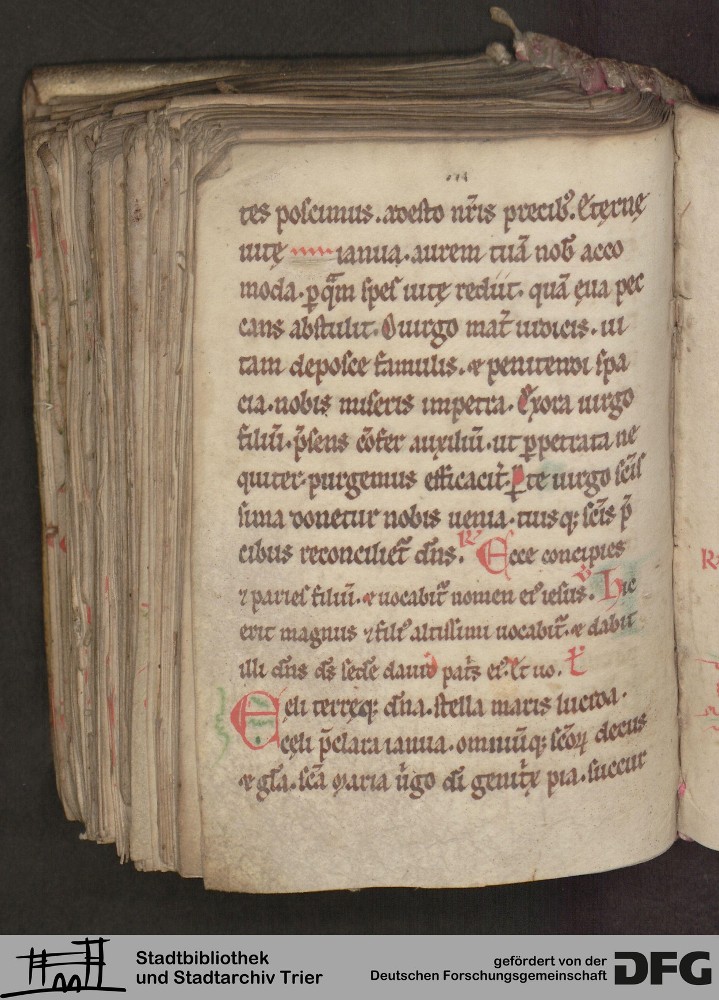 tes poscimus. adesto nr̄is precib⁹. Et̨ernę
uitę ianua. aurem tuā nob̄ acco
moda. ꝑ quā spes uitę rediit. quā ęua pec
cans abstulit. O uirgo mat̄ iudicis. ui
tam deposce famulis. ⁊ penitendi spa
cia. nobis miseris impetra. Exora uirgo
filiū. p̄sens cōfer auxiliū. ut ꝑpetrata ne
quiter. purgemus efficacit̄. ꝑ te uirgo sc̄is
sima donetur nobis uenia. tuisq; sc̄is p̄
cibus reconciliet̄ dn̄s. R Ecce concipies
⁊ paries filiū. ⁊ uocabit̄ nomen ei⁹ iesus. V Hic
erit magnus ⁊ fili⁹ altissimi uocabit̄. ⁊ dabit
illi dn̄s ds̄ sedē dauid pat̄s ei⁹. Et uo.
Celi terręq; dn̄a. stella maris lucida.
cęli p̄clara ianua. omniūq; sc̄oꝝ decus
⁊ gl̄a. sc̄a maria ūgo dī genit̄ę pia. succur
Stadtbibliothek
und Stadtarchiv Trier
gefördert von der
Deutschen Forschungsgemeinschaft
DFG